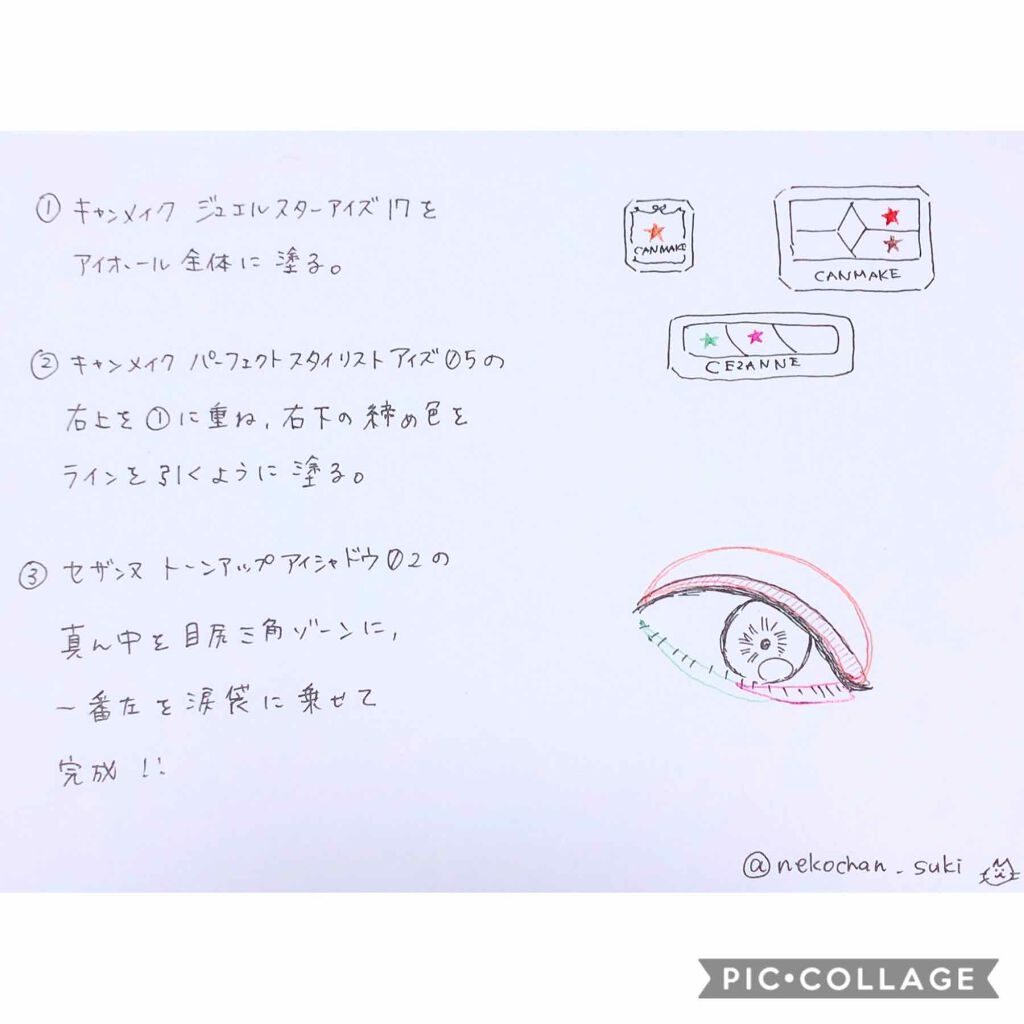 ① キャンメイク ジュエルスターアイズ17を
アイホール全体に塗る。
② キャンメイク パーフェクトスタイリストアイズ05の
右上を①に重ね、右下の締め色を
ラインを引くように塗る。
③ セザンヌ トーンアップアイシャドウ02の
真ん中を目尻三角ゾーンに、
一番左を涙袋に乗せて
完成!!
CANMAKE
CANMAKE
CEZANNE
@nekochan_suki
PIC•COLLAGE